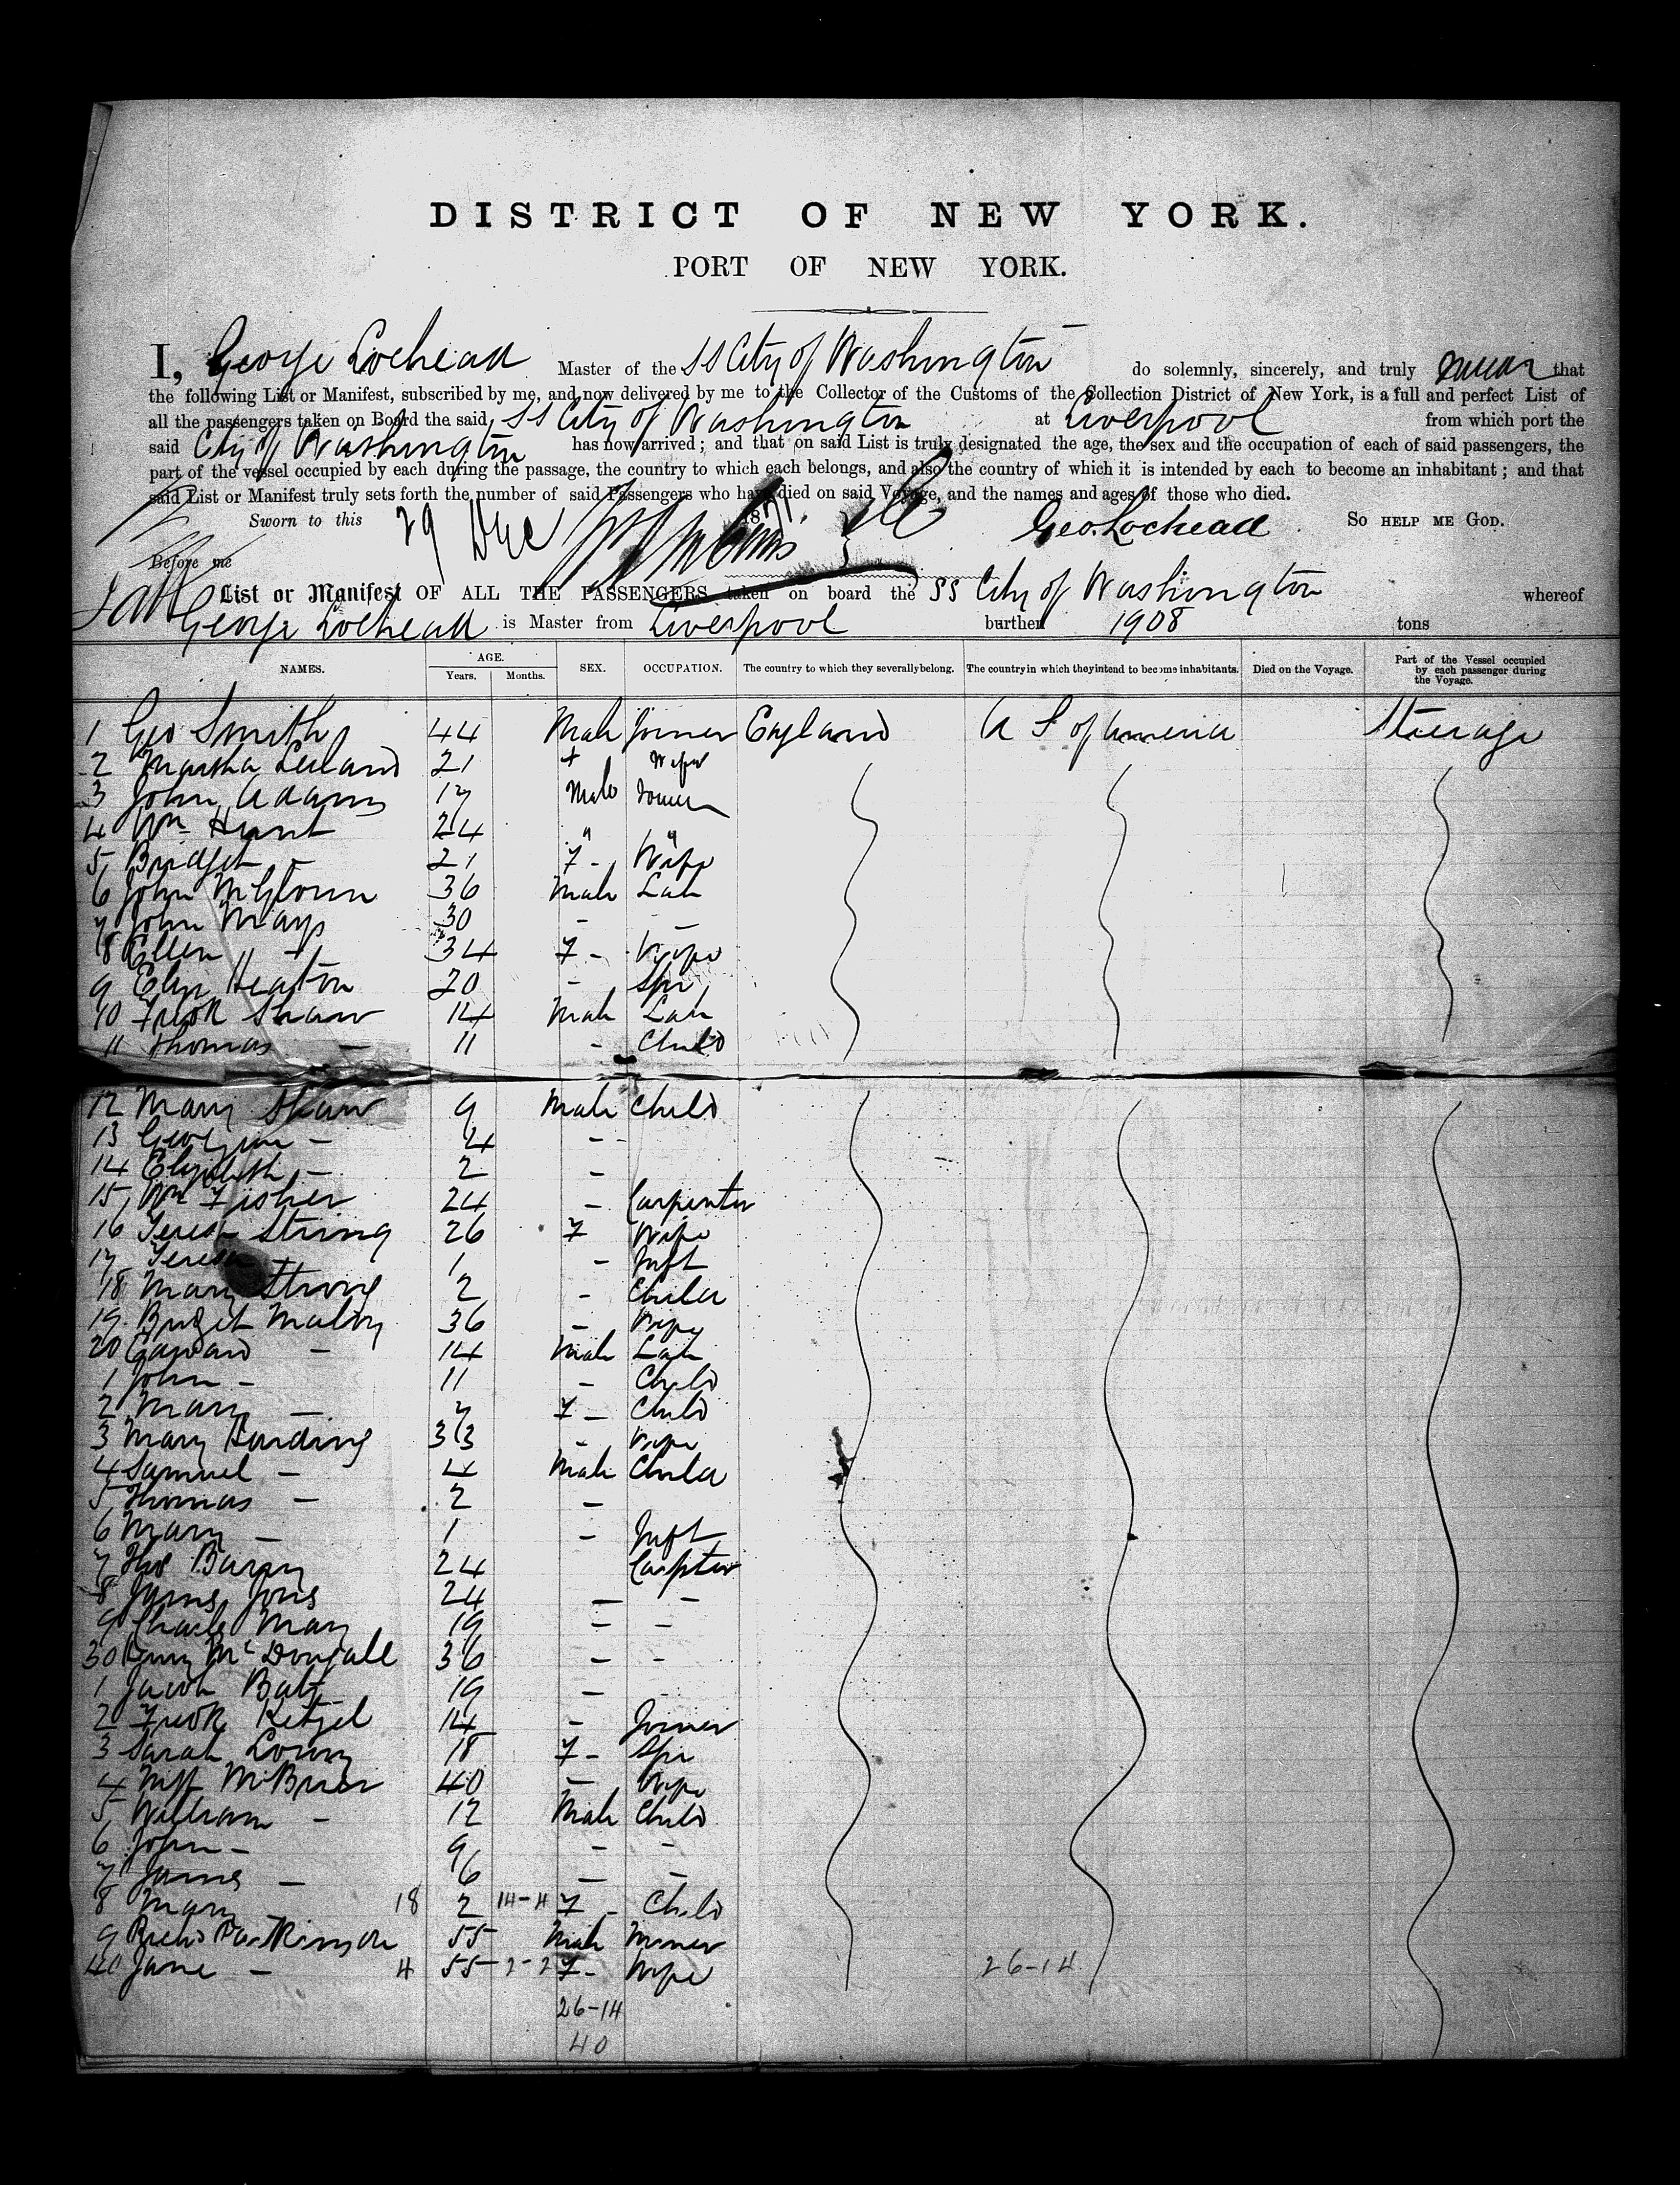 DISTRICT OF NEW YORK.
PORT OF NEW YORK.
I, George Lochead Master of the SS City of Washington do solemnly, sincerely, and truly swear that
the following List or Manifest, subscribed by me, and now delivered by me to the Collector of the Customs of the Collection District of New York, is a full and perfect List of
all the passengers taken on Board the said SS City of Washington at Liverpool from which port the
said City of Washington has now arrived; and that on said List is truly designated the age, the sex and the occupation of each of said passengers, the
part of the vessel occupied by each during the passage, the country to which each belongs, and also the country of which it is intended by each to become an inhabitant; and that
said List or Manifest truly sets forth the number of said Passengers who have died on said Voyage, and the names and ages of those who died.
Sworn to this 29 Dec 1871 Geo. Lochead So HELP ME GOD.
Before me
List or Manifest OF ALL THE PASSENGERS taken on board the SS City of Washington whereof
George Lochead is Master from Liverpool burthen 1908 tons
NAMES. AGE. Years. Months. SEX. OCCUPATION. The country to which they severally belong. The country in which they intend to become inhabitants. Died on the Voyage. Part of the Vessel occupied by each passenger during the Voyage.
1 Geo Smith 44 Male Joiner England U S of America Steerage
2 Martha Leeland 21 + Wife
3 John Adams 17 Male Joiner
4 Wm Hunt 24 " "
5 Bridget - 21 F - Wife
6 John McGlown 36 Male Lab
7 John Mays 30 - -
8 Ellen - 34 F - Wife
9 Eliz Heaton 20 - Spr
10 Fredk Shaw 14 Male Lab
11 Thomas - 11 - Child
12 Mary Shaw 9 Male Child
13 Georgina - 4 -
14 Elizabeth - 2 -
15 Wm Fisher 24 - Carpenter
16 Teresa String 26 F Wife
17 Teresa - 1 - Inft
18 Mary Strong 2 - Child
19 Bridget Maloy 36 - Wife
20 Edward - 14 Male Lab
1 John - 11 - Child
2 Mary - 7 F - Child
3 Mary Harding 33 - Wife
4 Samuel - 4 Male Child
5 Thomas - 2 -
6 Mary - 1 - Inft
7 Thos Barry 24 Carpter
8 James Jons 24 - -
9 Charles Mary 19 - -
30 Henry McDougall 36 - -
1 Jacob Batz 19 -
2 Fredk Ketzel 14 - Joiner
3 Sarah Lowry 18 F - Spr
4 McBrier 40 - Wife
5 William - 12 Male Child
6 John - 9 - -
7 James - 6 - -
8 Mary 18 2 14-4 F - Child
9 Richd Parkinson 55 Male Miner
40 Jane - 4 55 2-2 F - Wife 26-14
26-14
40